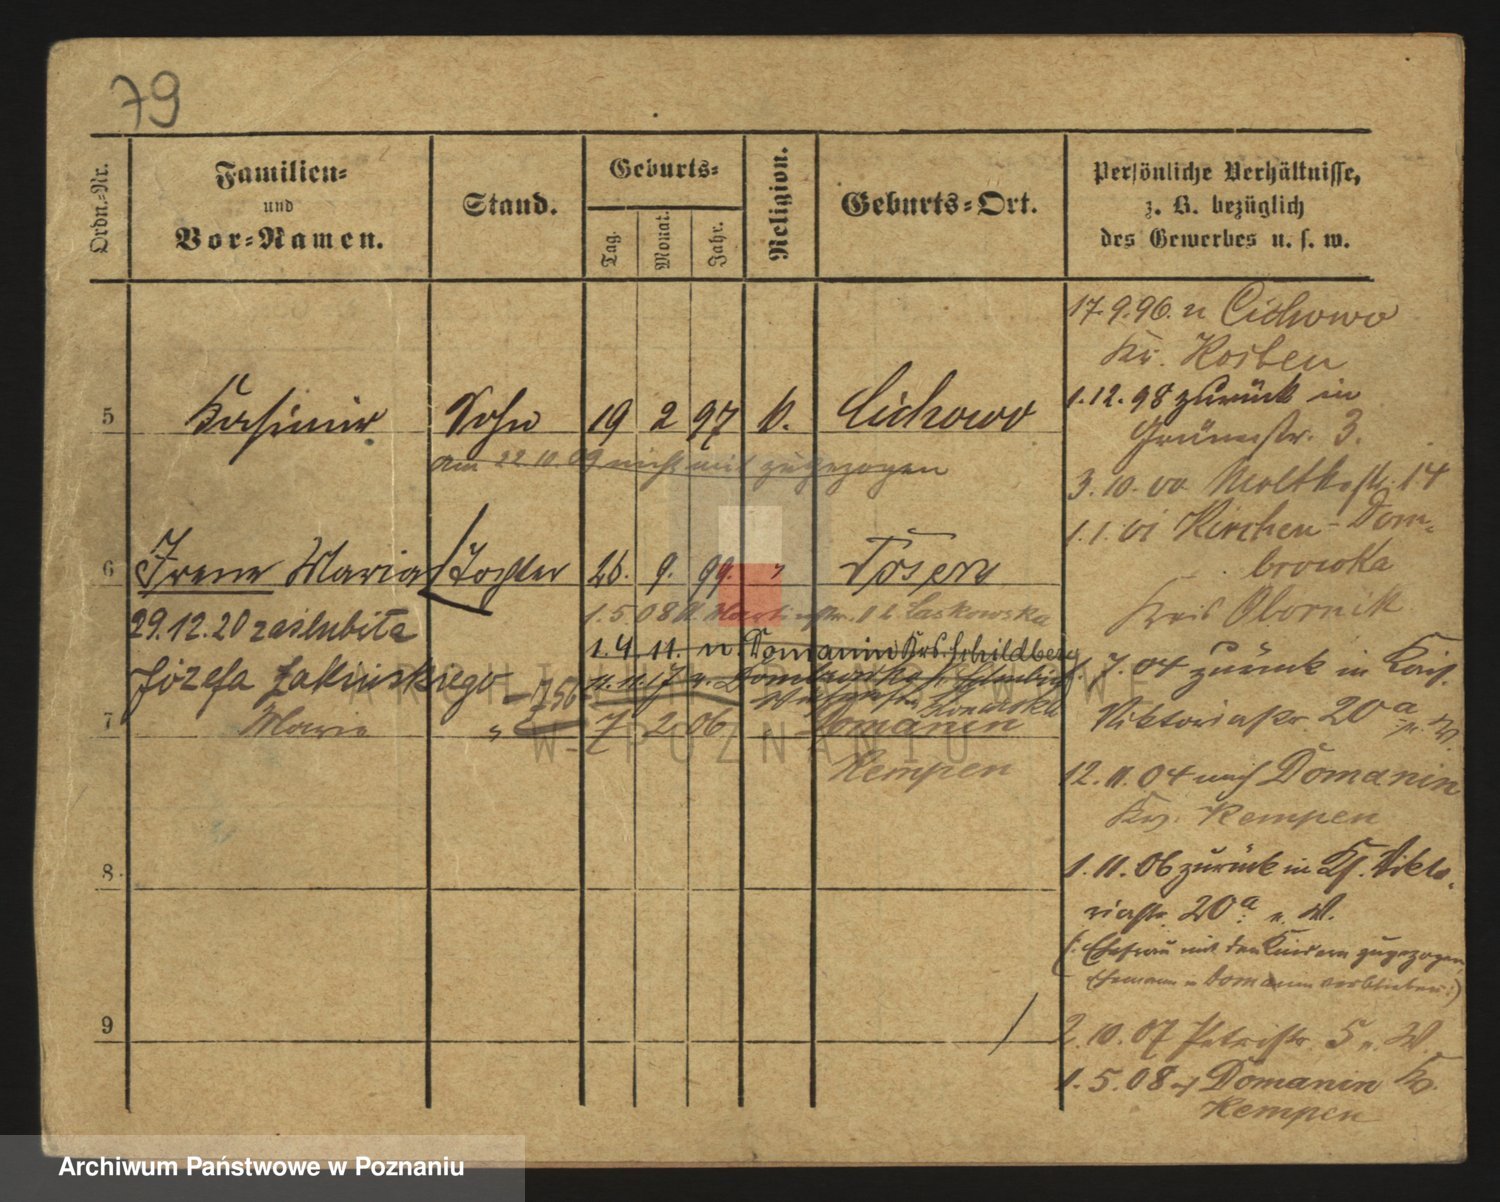 79
Ordn.-Nr.
Familien-
und
Vor-Namen.
Stand.
Geburts-
Tag.
Monat.
Jahr.
Religion.
Geburts-Ort.
Persönliche Verhältnisse,
z. B. bezüglich
des Gewerbes u. s. w.
5 Kasimir Sohn 19 2 97 k. Cichowo
am 22.10.09 nicht mit zugezogen
6 Irene Maria Tochter 26. 9. 99. " Posen
29.12.20 zaślubiła
Józefa
1.5.08 Laskowska
1.4.11. n. Domanin Krs. Schildberg
7 Maria " 7 2 06 " Domanin
Kempen
8
9
17.9.96. n Cichowo
Kr. Kosten
1.12.98 zurück in
Grünestr. 3.
3.10.00 Moltkestr. 14
1.1.01 Kirchen-Dom-
browka
Kreis Obornik
1.7.04 zurück in Kais.
Viktoriastr. 20a
12.11.04 nach Domanin
Kr. Kempen
1.11.06 zurück in Ks. Vikto-
riastr. 20a b. W.
(: Ehefrau mit den Kindern zugezogen,
Ehemann in Domanin verblieben :)
2.10.07 Petristr. 5 b. W.
1.5.08 n Domanin Kr.
Kempen
ARCHIWUM PAŃSTWOWE
W POZNANIU
Archiwum Państwowe w Poznaniu